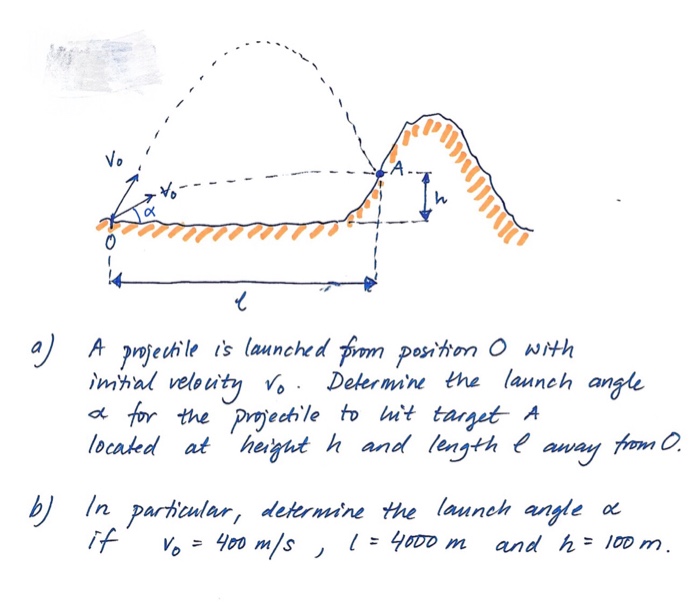 V₀
V₀
α
A
h
O
l
a) A projectile is launched from position O with
initial velocity v₀. Determine the launch angle
α for the projectile to hit target A
located at height h and length l away from O.
b) In particular, determine the launch angle α
if v₀ = 400 m/s, l = 4000 m and h = 100 m.